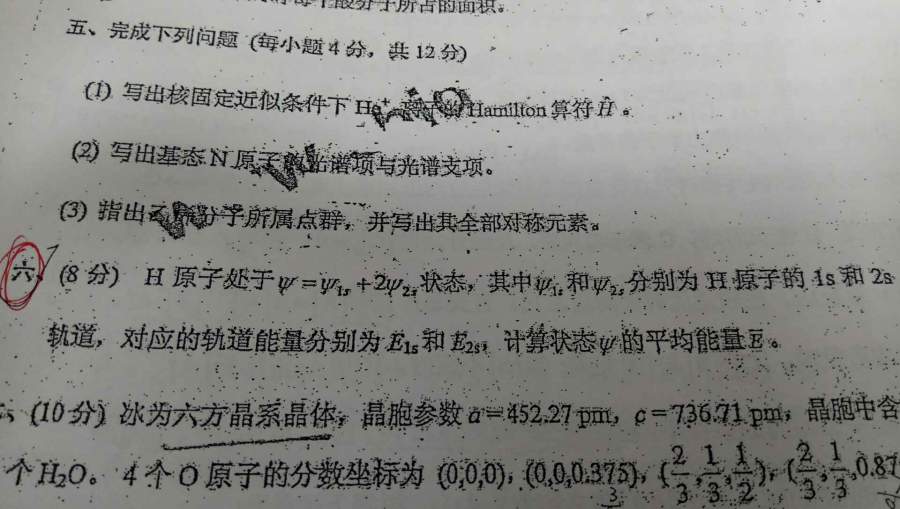 每个酸分子所占的面积。
五、完成下列问题 (每小题 4 分，共 12 分)
(1) 写出核固定近似条件下 He⁺ 离子的 Hamilton 算符 Ĥ 。
(2) 写出基态 N 原子的光谱项与光谱支项。
(3) 指出 分子所属点群，并写出其全部对称元素。
六、(8 分) H 原子处于 ψ=ψ₁ₛ+2ψ₂ₛ 状态，其中ψ₁ₛ 和ψ₂ₛ 分别为 H 原子的 1s 和 2s
轨道，对应的轨道能量分别为 E₁ₛ 和 E₂ₛ，计算状态ψ 的平均能量 E̅ 。
(10 分) 冰为六方晶系晶体，晶胞参数 a=452.27 pm，c=736.71 pm，晶胞中含
个 H₂O。4 个 O 原子的分数坐标为 (0,0,0)，(0,0,0.375)，(2/3,1/3,1/2)，(2/3,1/3,0.87